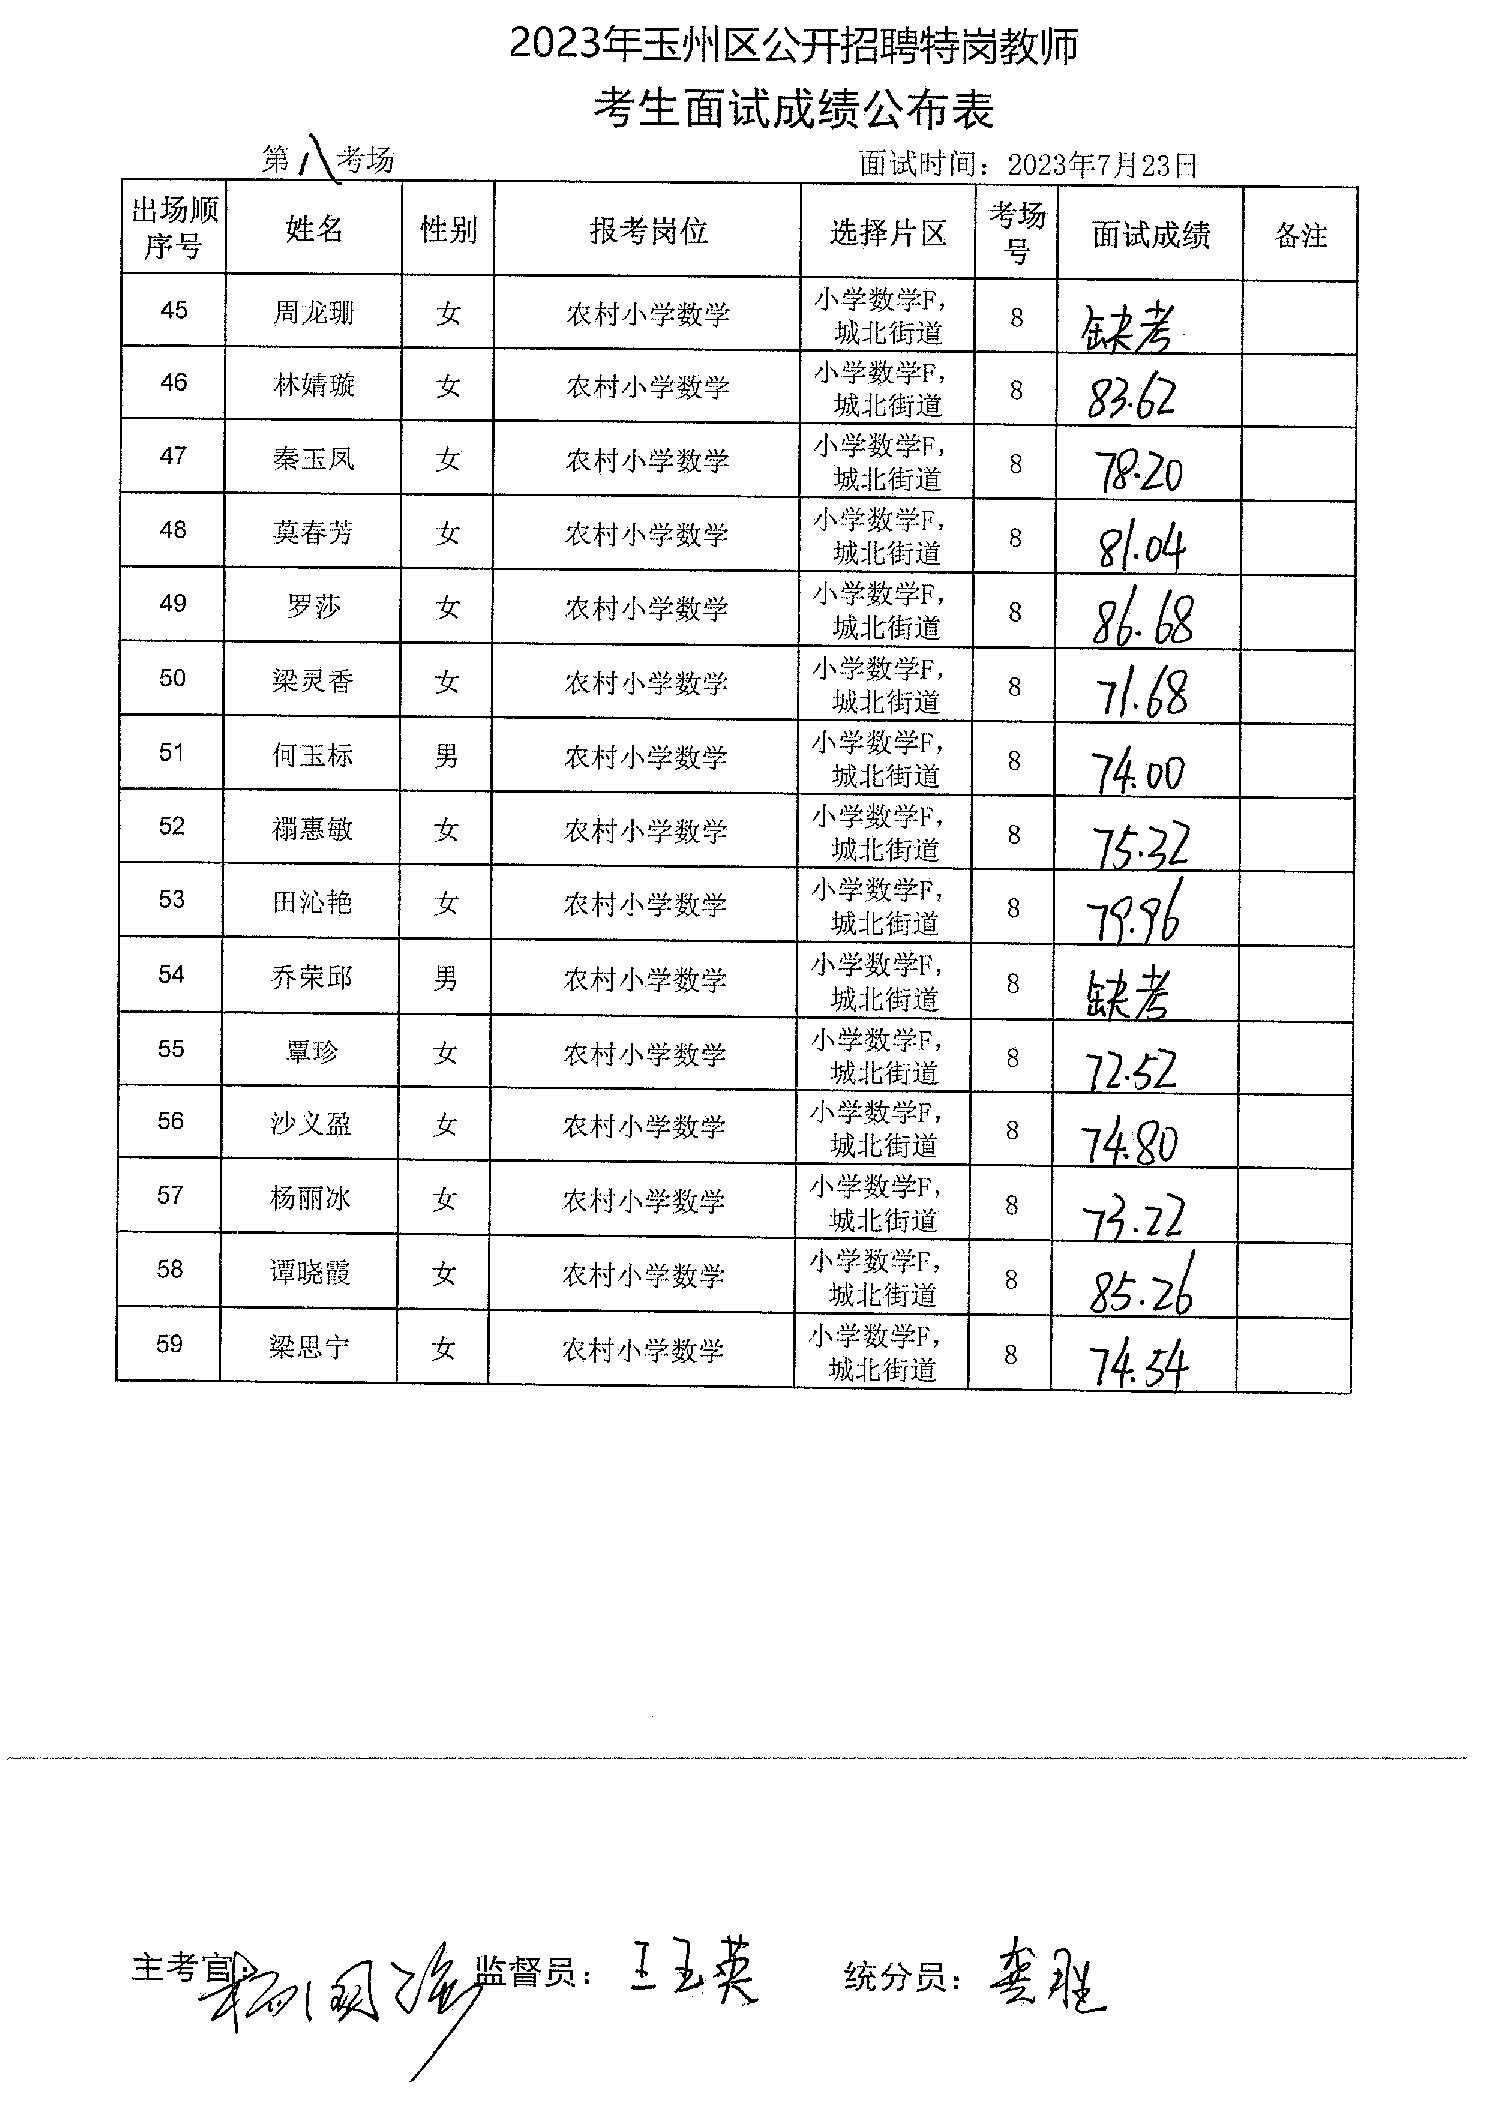 2023年玉州区公开招聘特岗教师
考生面试成绩公布表
第八考场 面试时间：2023年7月23日
出场顺序号 姓名 性别 报考岗位 选择片区 考场号 面试成绩 备注
45 周龙珊 女 农村小学数学 小学数学F，城北街道 8 缺考
46 林婧璇 女 农村小学数学 小学数学F，城北街道 8 83.62
47 秦玉凤 女 农村小学数学 小学数学F，城北街道 8 78.20
48 莫春芳 女 农村小学数学 小学数学F，城北街道 8 81.04
49 罗莎 女 农村小学数学 小学数学F，城北街道 8 86.68
50 梁灵香 女 农村小学数学 小学数学F，城北街道 8 71.68
51 何玉标 男 农村小学数学 小学数学F，城北街道 8 74.00
52 禤惠敏 女 农村小学数学 小学数学F，城北街道 8 75.32
53 田沁艳 女 农村小学数学 小学数学F，城北街道 8 79.96
54 乔荣邱 男 农村小学数学 小学数学F，城北街道 8 缺考
55 覃珍 女 农村小学数学 小学数学F，城北街道 8 72.52
56 沙义盈 女 农村小学数学 小学数学F，城北街道 8 74.80
57 杨丽冰 女 农村小学数学 小学数学F，城北街道 8 73.22
58 谭晓霞 女 农村小学数学 小学数学F，城北街道 8 85.26
59 梁思宁 女 农村小学数学 小学数学F，城北街道 8 74.54
主考官： 监督员：王玉英 统分员：龚胜